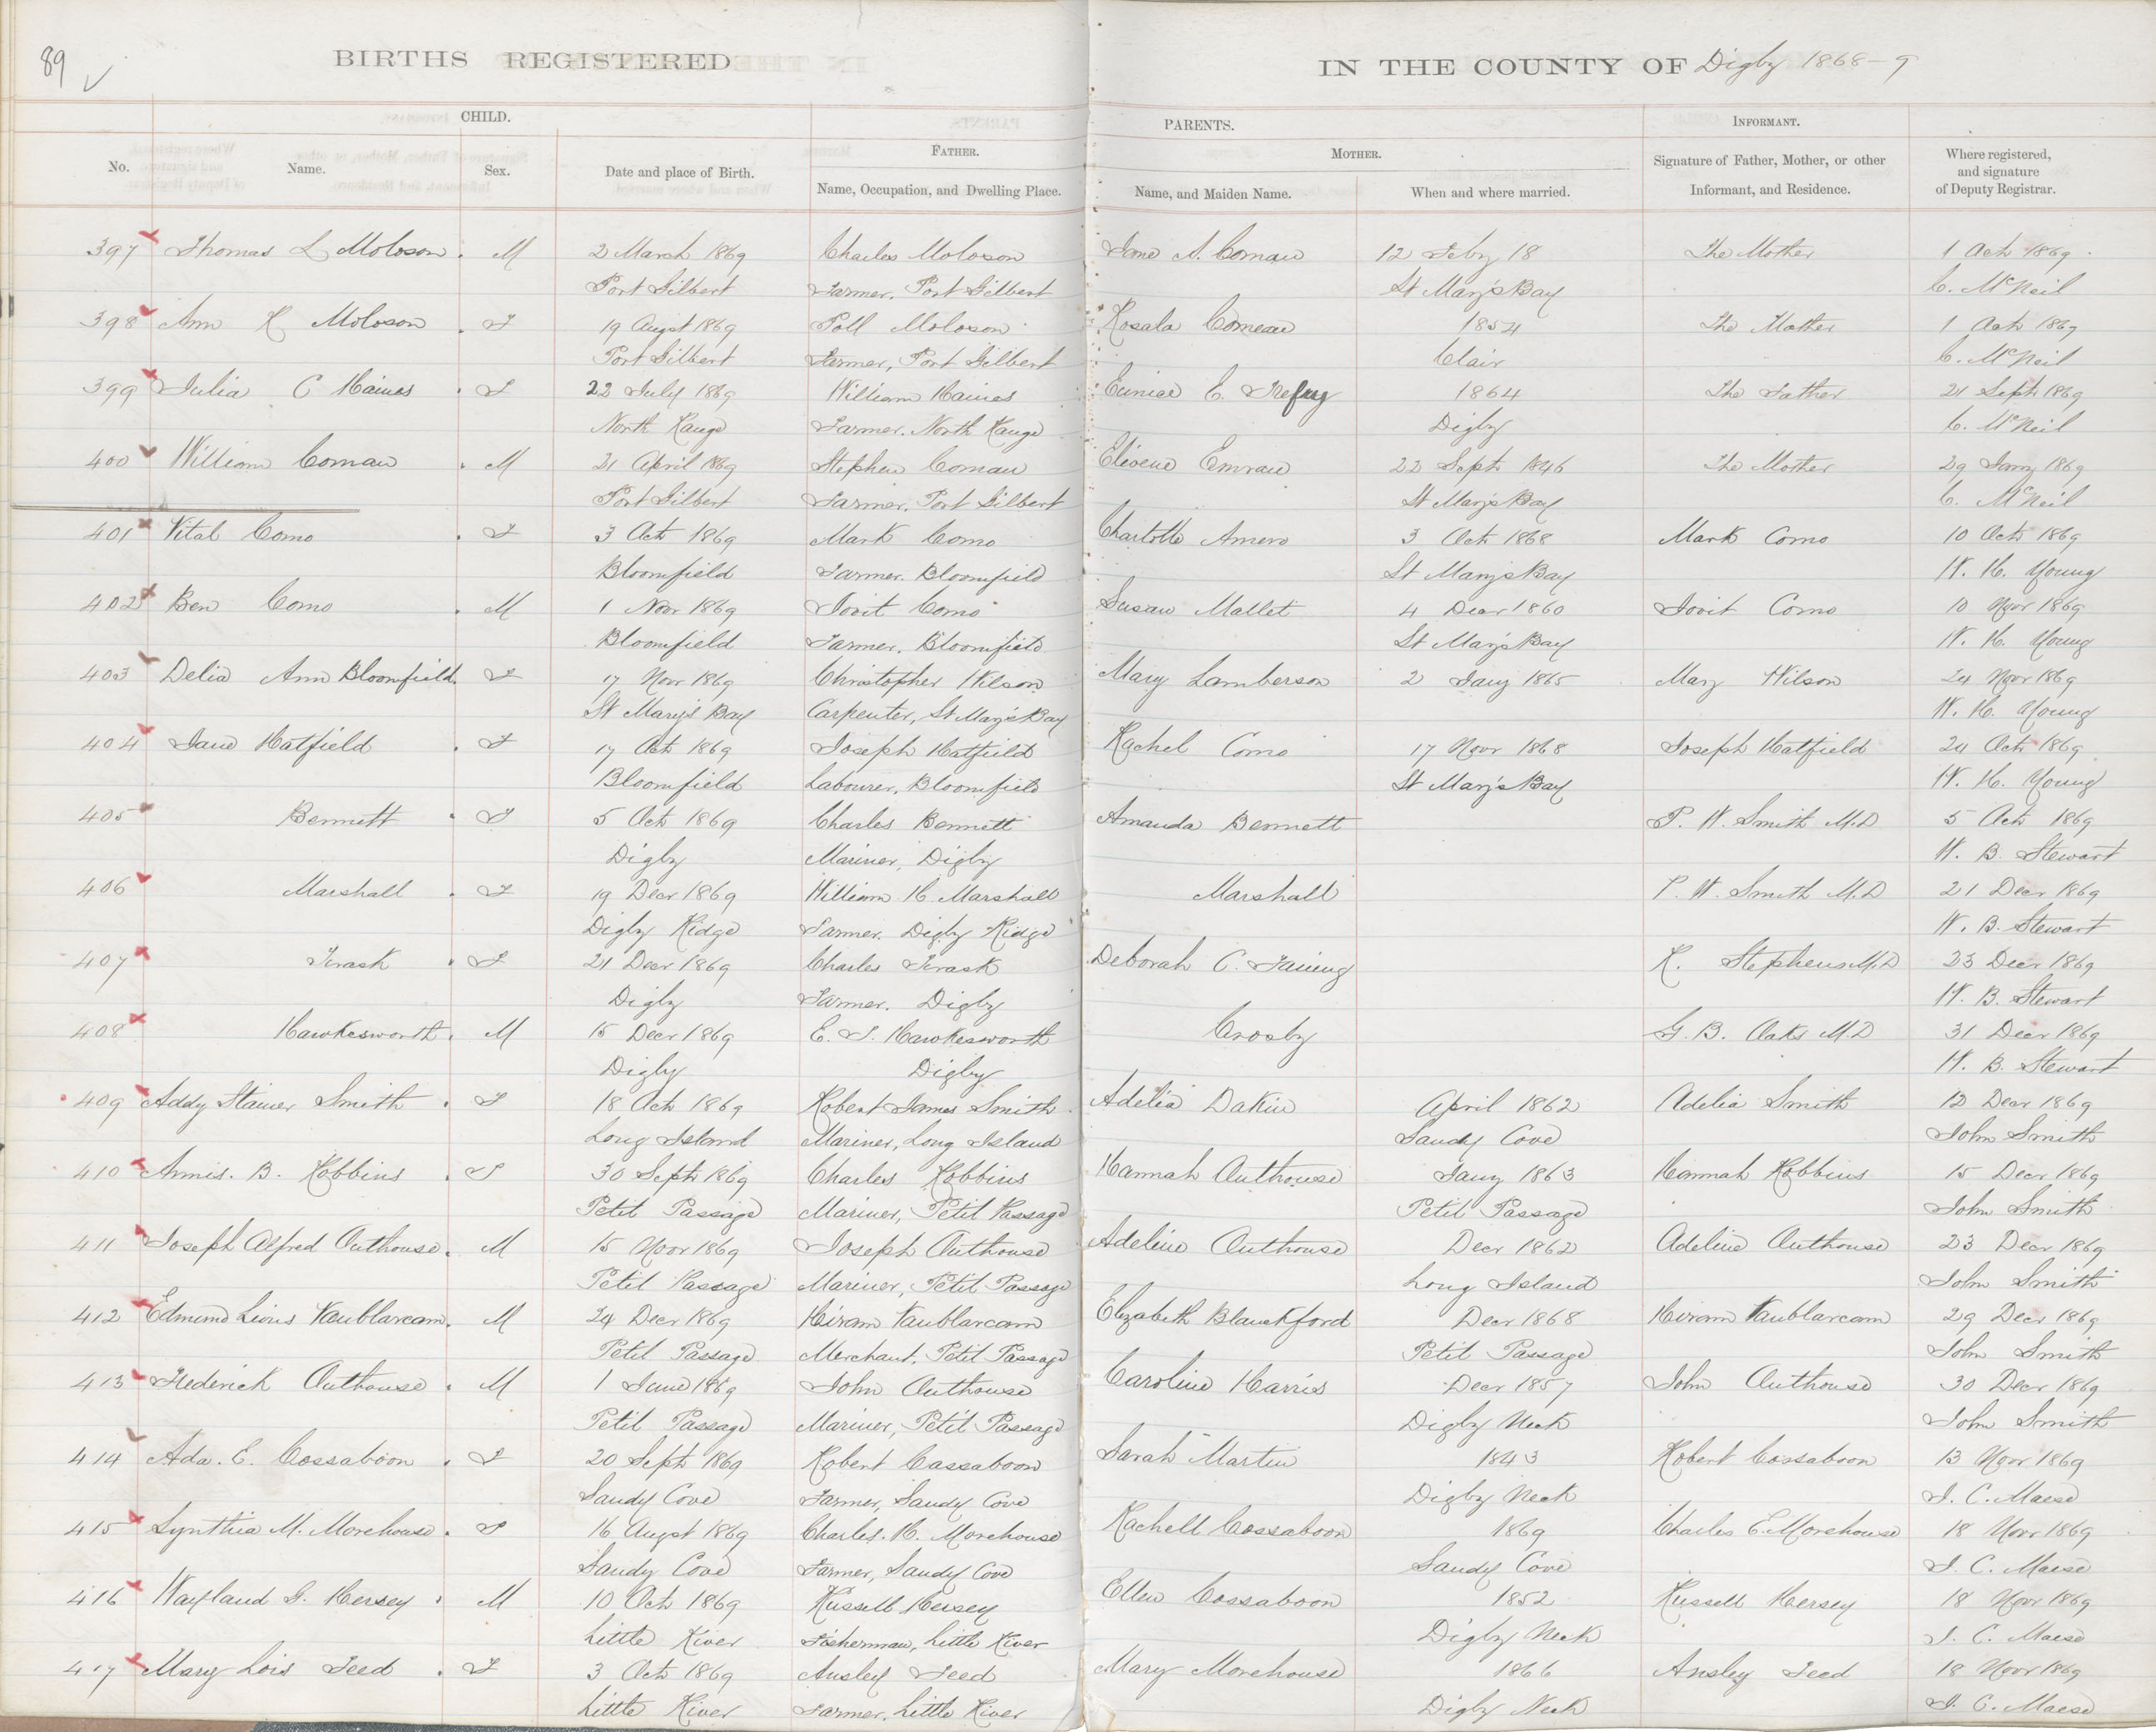 89
BIRTHS REGISTERED IN THE COUNTY OF Digby 1868-9
CHILD. PARENTS. INFORMANT.
No. Name. Sex. Date and place of Birth. FATHER. MOTHER. Signature of Father, Mother, or other Where registered, and signature
Name, Occupation, and Dwelling Place. Name, and Maiden Name. When and where married. Informant, and Residence. of Deputy Registrar.
397 Thomas L Moloson. M 2 March 1869 Charles Moloson Jane A. Comau 12 Feby 18 The Mother 1 Oct 1869.
Port Gilbert Farmer, Port Gilbert St Mary's Bay C. McNeil
398 Ann K Moloson. F 19 Augst 1869 Poll Moloson Rosala Comeau 1854 The Mother 1 Oct 1869
Port Gilbert Farmer, Port Gilbert Clair C. McNeil
399 Julia C Haines. F 22 July 1869 William Haines Eunice E. Trefry 1864 The Father 21 Sept 1869
North Range Farmer. North Range Digby C. McNeil
400 William Comau. M 21 April 1869 Stephen Comau Elivene Emrau 22 Sept 1846 The Mother 29 Jany 1869
Port Gilbert Farmer, Port Gilbert St Mary's Bay C. McNeil
401 Vital Como. F 3 Oct 1869 Mark Como Charlotte Amero 3 Oct 1868 Mark Como 10 Oct 1869
Bloomfield Farmer. Bloomfield St Mary's Bay W. H. Young
402 Ben Como. M 1 Novr 1869 Jovit Como Susan Mallet 4 Decr 1860 Jovit Como 10 Novr 1869
Bloomfield Farmer, Bloomfield St Mary's Bay W. H. Young
403 Delia Ann Bloomfield. F 17 Novr 1869 Christopher Wilson Mary Lamberson 2 Jany 1865 Mary Wilson 24 Novr 1869
St Mary's Bay Carpenter, St Mary's Bay W. H. Young
404 Jane Hatfield. F 17 Oct 1869 Joseph Hatfield Rachel Como 17 Novr 1868 Joseph Hatfield 24 Oct 1869
Bloomfield Labourer, Bloomfield St Mary's Bay W. H. Young
405 Bennett. F 5 Oct 1869 Charles Bennett Amanda Bennett P. W. Smith M.D 5 Oct 1869
Digby Mariner, Digby W. B. Stewart
406 Marshall. F 19 Decr 1869 William H. Marshall Marshall P. W. Smith M.D 21 Decr 1869
Digby Ridge Farmer. Digby Ridge W. B. Stewart
407 Trask. F 21 Decr 1869 Charles Trask Deborah C. R. Stephens M.D 23 Decr 1869
Digby Farmer. Digby W. B. Stewart
408 Hawkesworth. M 15 Decr 1869 E. S. Hawkesworth Crosby G. B. Oaks M.D 31 Decr 1869
Digby Digby W. B. Stewart
409 Addy Stainer Smith. F 18 Oct 1869 Robert James Smith Adelia Dakin April 1862 Adelia Smith 12 Decr 1869
Long Island Mariner, Long Island Sandy Cove John Smith
410 Annis. B. Robbins. F 30 Sept 1869 Charles Robbins Hannah Outhouse Jany 1863 Hannah Robbins 15 Decr 1869
Petit Passage Mariner, Petit Passage Petit Passage John Smith
411 Joseph Alfred Outhouse. M 15 Novr 1869 Joseph Outhouse Adeline Outhouse Decr 1862 Adeline Outhouse 23 Decr 1869
Petit Passage Mariner, Petit Passage Long Island John Smith
412 Edmund Lions Vanblarcam. M 24 Decr 1869 Hiram Vanblarcam Elizabeth Blanckford Decr 1868 Hiram Vanblarcam 29 Decr 1869
Petit Passage Merchant, Petit Passage Petit Passage John Smith
413 Frederick Outhouse. M 1 June 1869 John Outhouse Caroline Harris Decr 1857 John Outhouse 30 Decr 1869
Petit Passage Mariner, Petit Passage Digby Neck John Smith
414 Ada. E. Cossaboon. F 20 Sept 1869 Robert Cassaboon Sarah Martin 1843 Robert Cossaboon 13 Novr 1869
Sandy Cove Farmer, Sandy Cove Digby Neck J. C. Maese
415 Synthia M. Morehouse. F 16 Augst 1869 Charles. H. Morehouse Rachell Cossaboon 1869 Charles E. Morehouse 18 Novr 1869
Sandy Cove Farmer, Sandy Cove Sandy Cove J. C. Maese
416 Wayland G. Hersey. M 10 Oct 1869 Russell Hersey Ellen Cossaboon 1852 Russell Hersey 18 Novr 1869
Little River Fisherman, Little River Digby Neck J. C. Maese
417 Mary Lois Teed. F 3 Oct 1869 Ansley Teed Mary Morehouse 1866 Ansley Teed 18 Novr 1869
Little River Farmer, Little River Digby Neck J. C. Maese